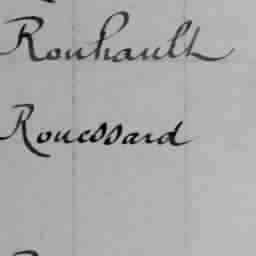 Rouhault
Rouessard